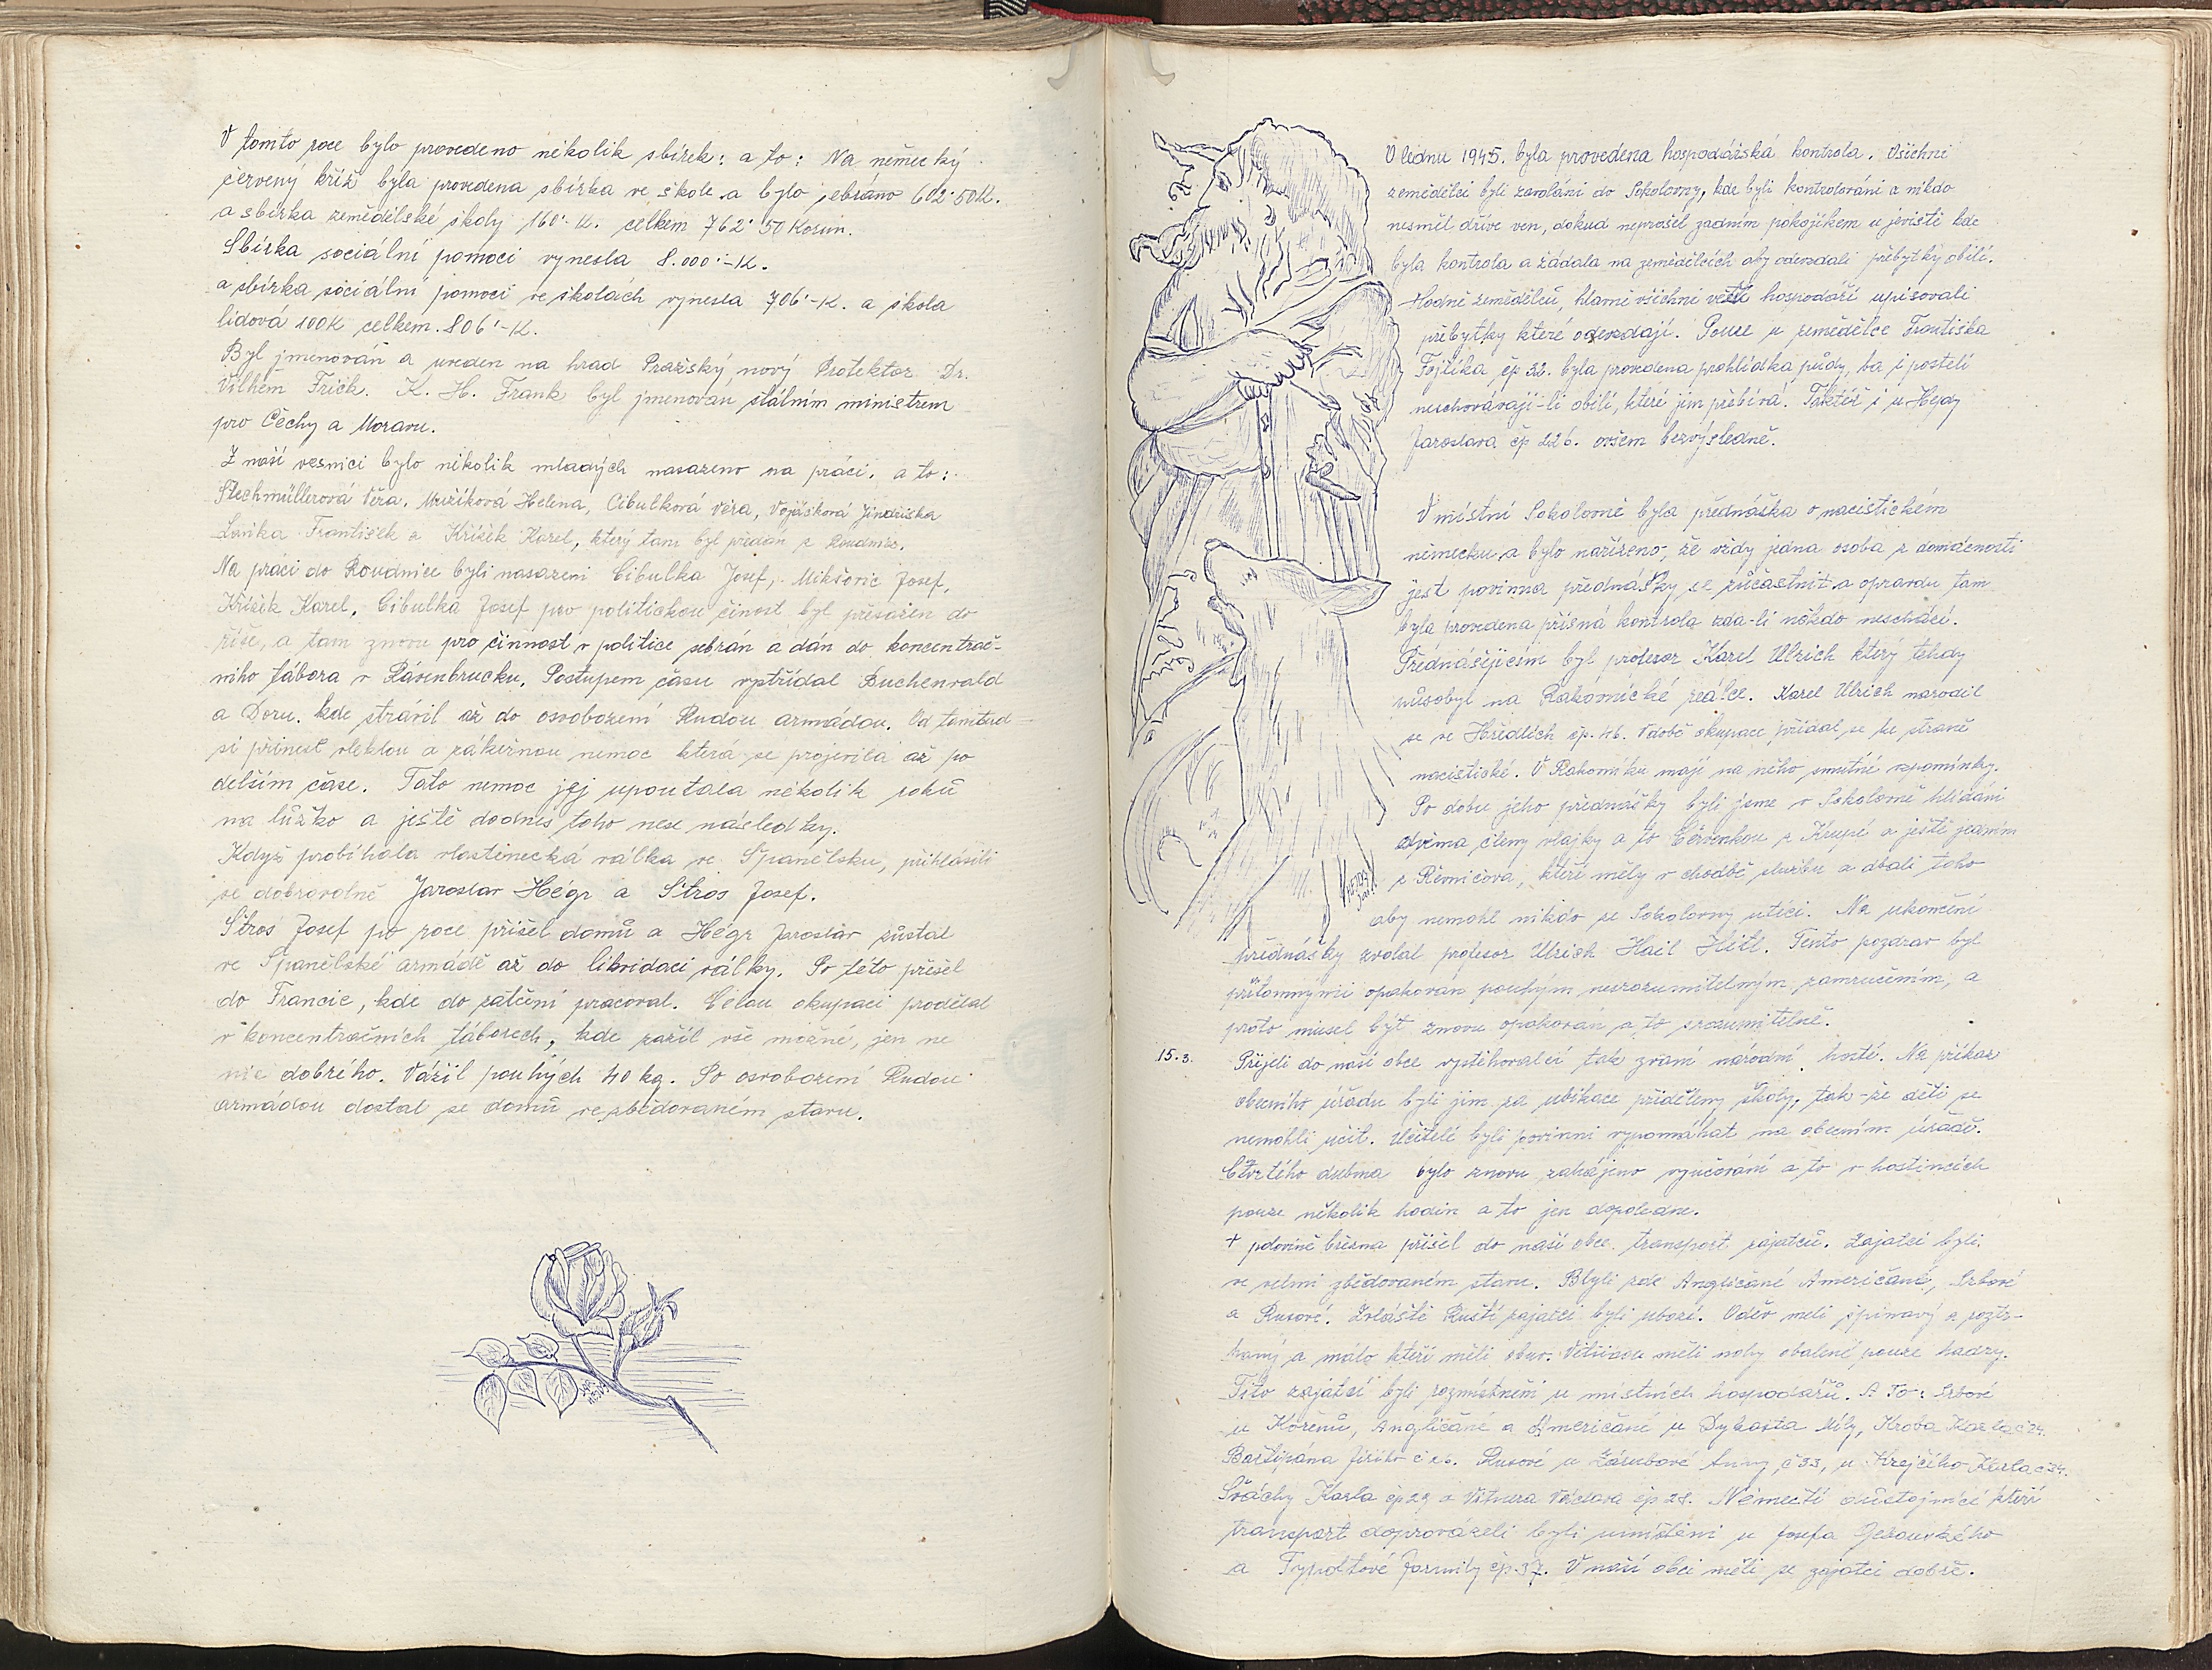 V tomto roce bylo provedeno několik sbírek: a to: Na německý
červený kříž byla provedena sbírka ve škole a bylo sebráno 602·50K.
a sbírka zemědělské školy 160·-K. celkem 762·50 Korun.
Sbírka sociální pomoci vynesla 8.000·-K.
a sbírka sociální pomoci ve školách vynesla 706'-K. a škola
lidová 100K celkem. 806'-K.
Byl jmenován a uveden na hrad Pražský, nový Protektor Dr.
Vilhém Frick. K. H. Frank byl jmenován státním ministrem
pro Čechy a Moravu.
Z naší vesnici bylo několik mladých nasazeno na práci. a to:
Stechmüllerová Věra, Mužíková Helena, Cibulková Věra, Vojášková Jindřiška
Laňka František a Křížek Karel, který tam byl předán z Roudnice.
Na práci do Roudnice byli nasazeni Cibulka Josef, Mikšovic Josef,
Křížek Karel, Cibulka Josef pro politickou činost byl přesazen do
říše, a tam znovu pro činnost v politice sebrán a dán do koncentrač-
ního tábora v Rávenbrucku. Postupem času vystřídal Buchenvald
a Doru. kde strávil až do osvobození Rudou armádou. Od tamtud
si přinesl vleklou a zákeřnou nemoc která se projevila až po
delším čase. Tato nemoc jej upoutala několik roků
na lůžko a ještě dodnes toho nese následky.
Když probíhala vlastenecká válka ve Španělsku, přihlásili
se dobrovolně Jaroslav Hégr a Štros Josef.
Štros Josef po roce přišel domů a Hégr Jaroslav zůstal
ve Španělské armádě až do likvidaci války. Po této přešel
do Francie, kde do zatčení pracoval. Celou okupaci prodělal
v koncentračních táborech, kde zažil vše možné, jen ne
nic dobrého. Vážil pouhých 40 kg. Po osvobození Rudou
armádou dostal se domů ve zbědovaném stavu.
V lednu 1945. byla provedena hospodářská kontrola. Všichni
zemědělci byli zavoláni do Sokolovny, kde byli kontrolováni a nikdo
nesměl dříve ven, dokud neprošel zadním pokojíkem u jeviště kde
byla kontrola a žádala na zemědělcích aby odevzdali přebytky obilí.
Hodně zemědělců, hlavně všichni vetší hospodáři upisovali
přebytky které odevzdají. Pouze u zemědělce Františka
Fojtíka čp 32. byla provedena prohlídka půdy, ba i postelí
neschovávají-li obilí, které jim přebívá. Taktéž i u Hejdy
Jaroslava čp 226. ovšem bezvýsledně.
V místní Sokolovně byla přednáška o nacistickém
německu a bylo nařízeno, že vždy jedna osoba z domácnosti
jest povinna přednášky se zůčastnit a opravdu tam
byla provedena přísná kontrola zda-li někdo neschází.
Přednášejícím byl profesor Karel Ulrich který tehdy
působyl na Rakovnické reálce. Karel Ulrich narodil
se ve Hředlích čp. 46. V době okupace přidal se ke straně
nacistické. V Rakovníku mají na něho smutné vzpomínky.
Po dobu jeho přednášky byli jsme v Sokolovně hlídáni
dvěma členy vlajky a to Červenkou z Krupé a ještě jedním
z Řevničova, kteří měly v chodbě službu a dbali toho
aby nemohl nikdo ze Sokolovny utéci. Na ukončení
přednášky zvolal profesor Ulrich Hail Hitl. Tento pozdrav byl
přítomnými opakován pouhým nesrozumitelným zamručením, a
proto musel být znovu opakován a to srozumitelně.
15.3. Přijeli do naší obce vystěhovalci tak zvaní národní hosté. Na příkaz
obecního úřadu byli jim za ubikace přiděleny školy, tak-že děti se
nemohli učit. Učitelé byli povinni vypomáhat na obecním úřadě.
Čtvrtého dubna bylo znovu zahájeno vyučování a to v hostincích
pouze několik hodin a to jen dopoledne.
+ polovině března přišel do naší obce transport zajatců. Zajatci byli
ve velmi zbědovaném stavu. Blyli zde Angličané Američané, Srbové
a Rusové. Zvláště Rustí zajatci byli ubozí. Oděv meli špinavý a roztr-
haný a málo kteří měli obuv. Většinou měli nohy obalené pouze hadry.
Tito zajatci byli rozmístněni u místních hospodářů. A To: Srbové
u Kořenů, Angličané a Američané u Dykasta Mily, Kroba Karla č 24.
Baštipána Jiřího č 26. Rusové u Zárubové Anny, č 33, u Krejčího Karla č 34.
Šváchy Karla čp 29 a Vitnera Václava čp 28. Němečtí důstojníci kteří
transport doprovázeli byli umístěni u Josefa
a Typoltové Jarmily čp 37. V naší obci měli se zajatci dobře.